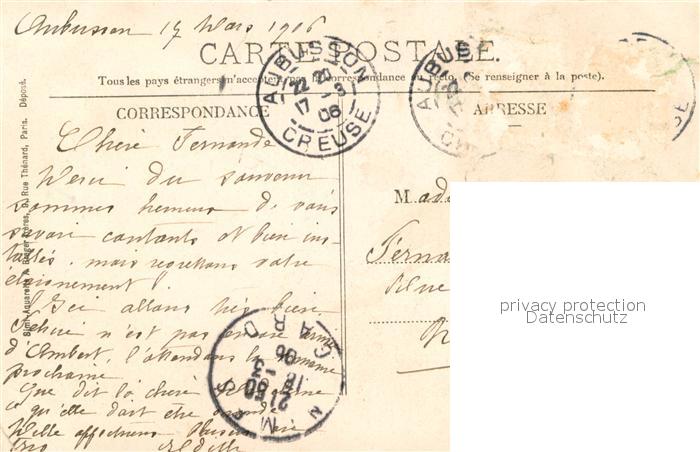 Aubusson 17 Mars 1906
CARTE POSTALE.
Tous les pays étrangers n'acceptent pas la correspondance au recto. (Se renseigner à la poste).
AUBUSSON
22
17 - 3
06
CREUSE
AUBUS
CORRESPONDANCE
ADRESSE
Chère Fernande
Merci du souvenir
sommes heureux de vous
savoir contents et bien ins-
tallés, mais regrettons votre
éloignement!
Ici allons très bien
n'est pas encore
d'Ambert, l'attendons la semaine
prochaine
Que dit la chère
ce qu'elle doit être
Mille affections
Mad
Rue
NIMES
GARD
21
18 - 3
06
Simi-Aquarelle A. Breger frères, 9, Rue Thénard, Paris. Déposé.
privacy protection
Datenschutz